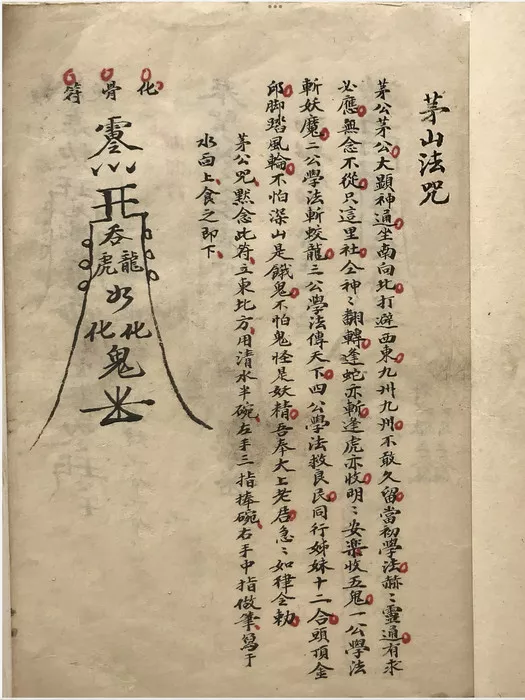 茅山法咒
茅公茅公大顯神通坐南向北打避西東九州九州不敢久留當初學法赫〻靈通有求
必應無念不從只這里社仝神〻翻轉逢蛇亦斬逢虎亦收明〻安樂收五鬼一公學法
斬妖魔二公學法斬蛟龍三公學法傳天下四公學法救良民同行姊妹十二合頭頂金
邱脚踏風輪不怕深山是餓鬼不怕鬼怪是妖精吾奉大上老君急〻如律仝勅
茅公咒黙念此符立東比方用清水半碗左手三指捧碗右手中指做筆寫于
水向上食之即下
化骨符
吞
龍虎
水
化化
鬼